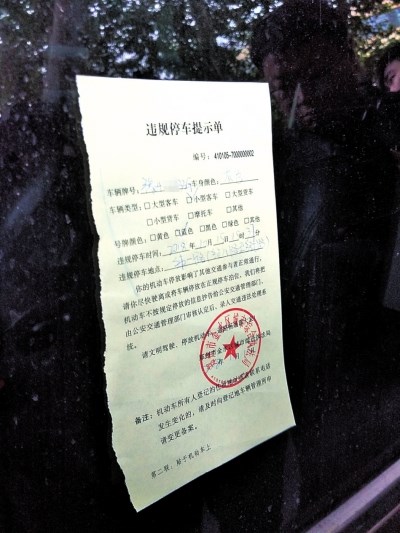 违规停车提示单
编号：410105-7000000002
车辆牌号： 车身颜色：
车辆类型：□大型客车 □小型客车 □大型货车
□小型货车 □摩托车 □其他
号牌颜色：□黄色 □蓝色 □黑色 □绿色 □其他
违规停车时间： 年 月 日 时 分
违规停车地点：
你的机动车停放影响了其他交通参与者正常通行，
请你尽快驶离或将车辆停放在正规停车泊位。我们将把
机动车不按规定停放的信息抄告公安交通管理部门，
由公安交通管理部门审核认定后，录入交通违法处理系
统。
请文明驾驶、停放机动车
备注：机动车所有人登记的 联系电话
发生变化的，请及时向登记地车辆管理所申
请变更备案。
第二联：贴于机动车上